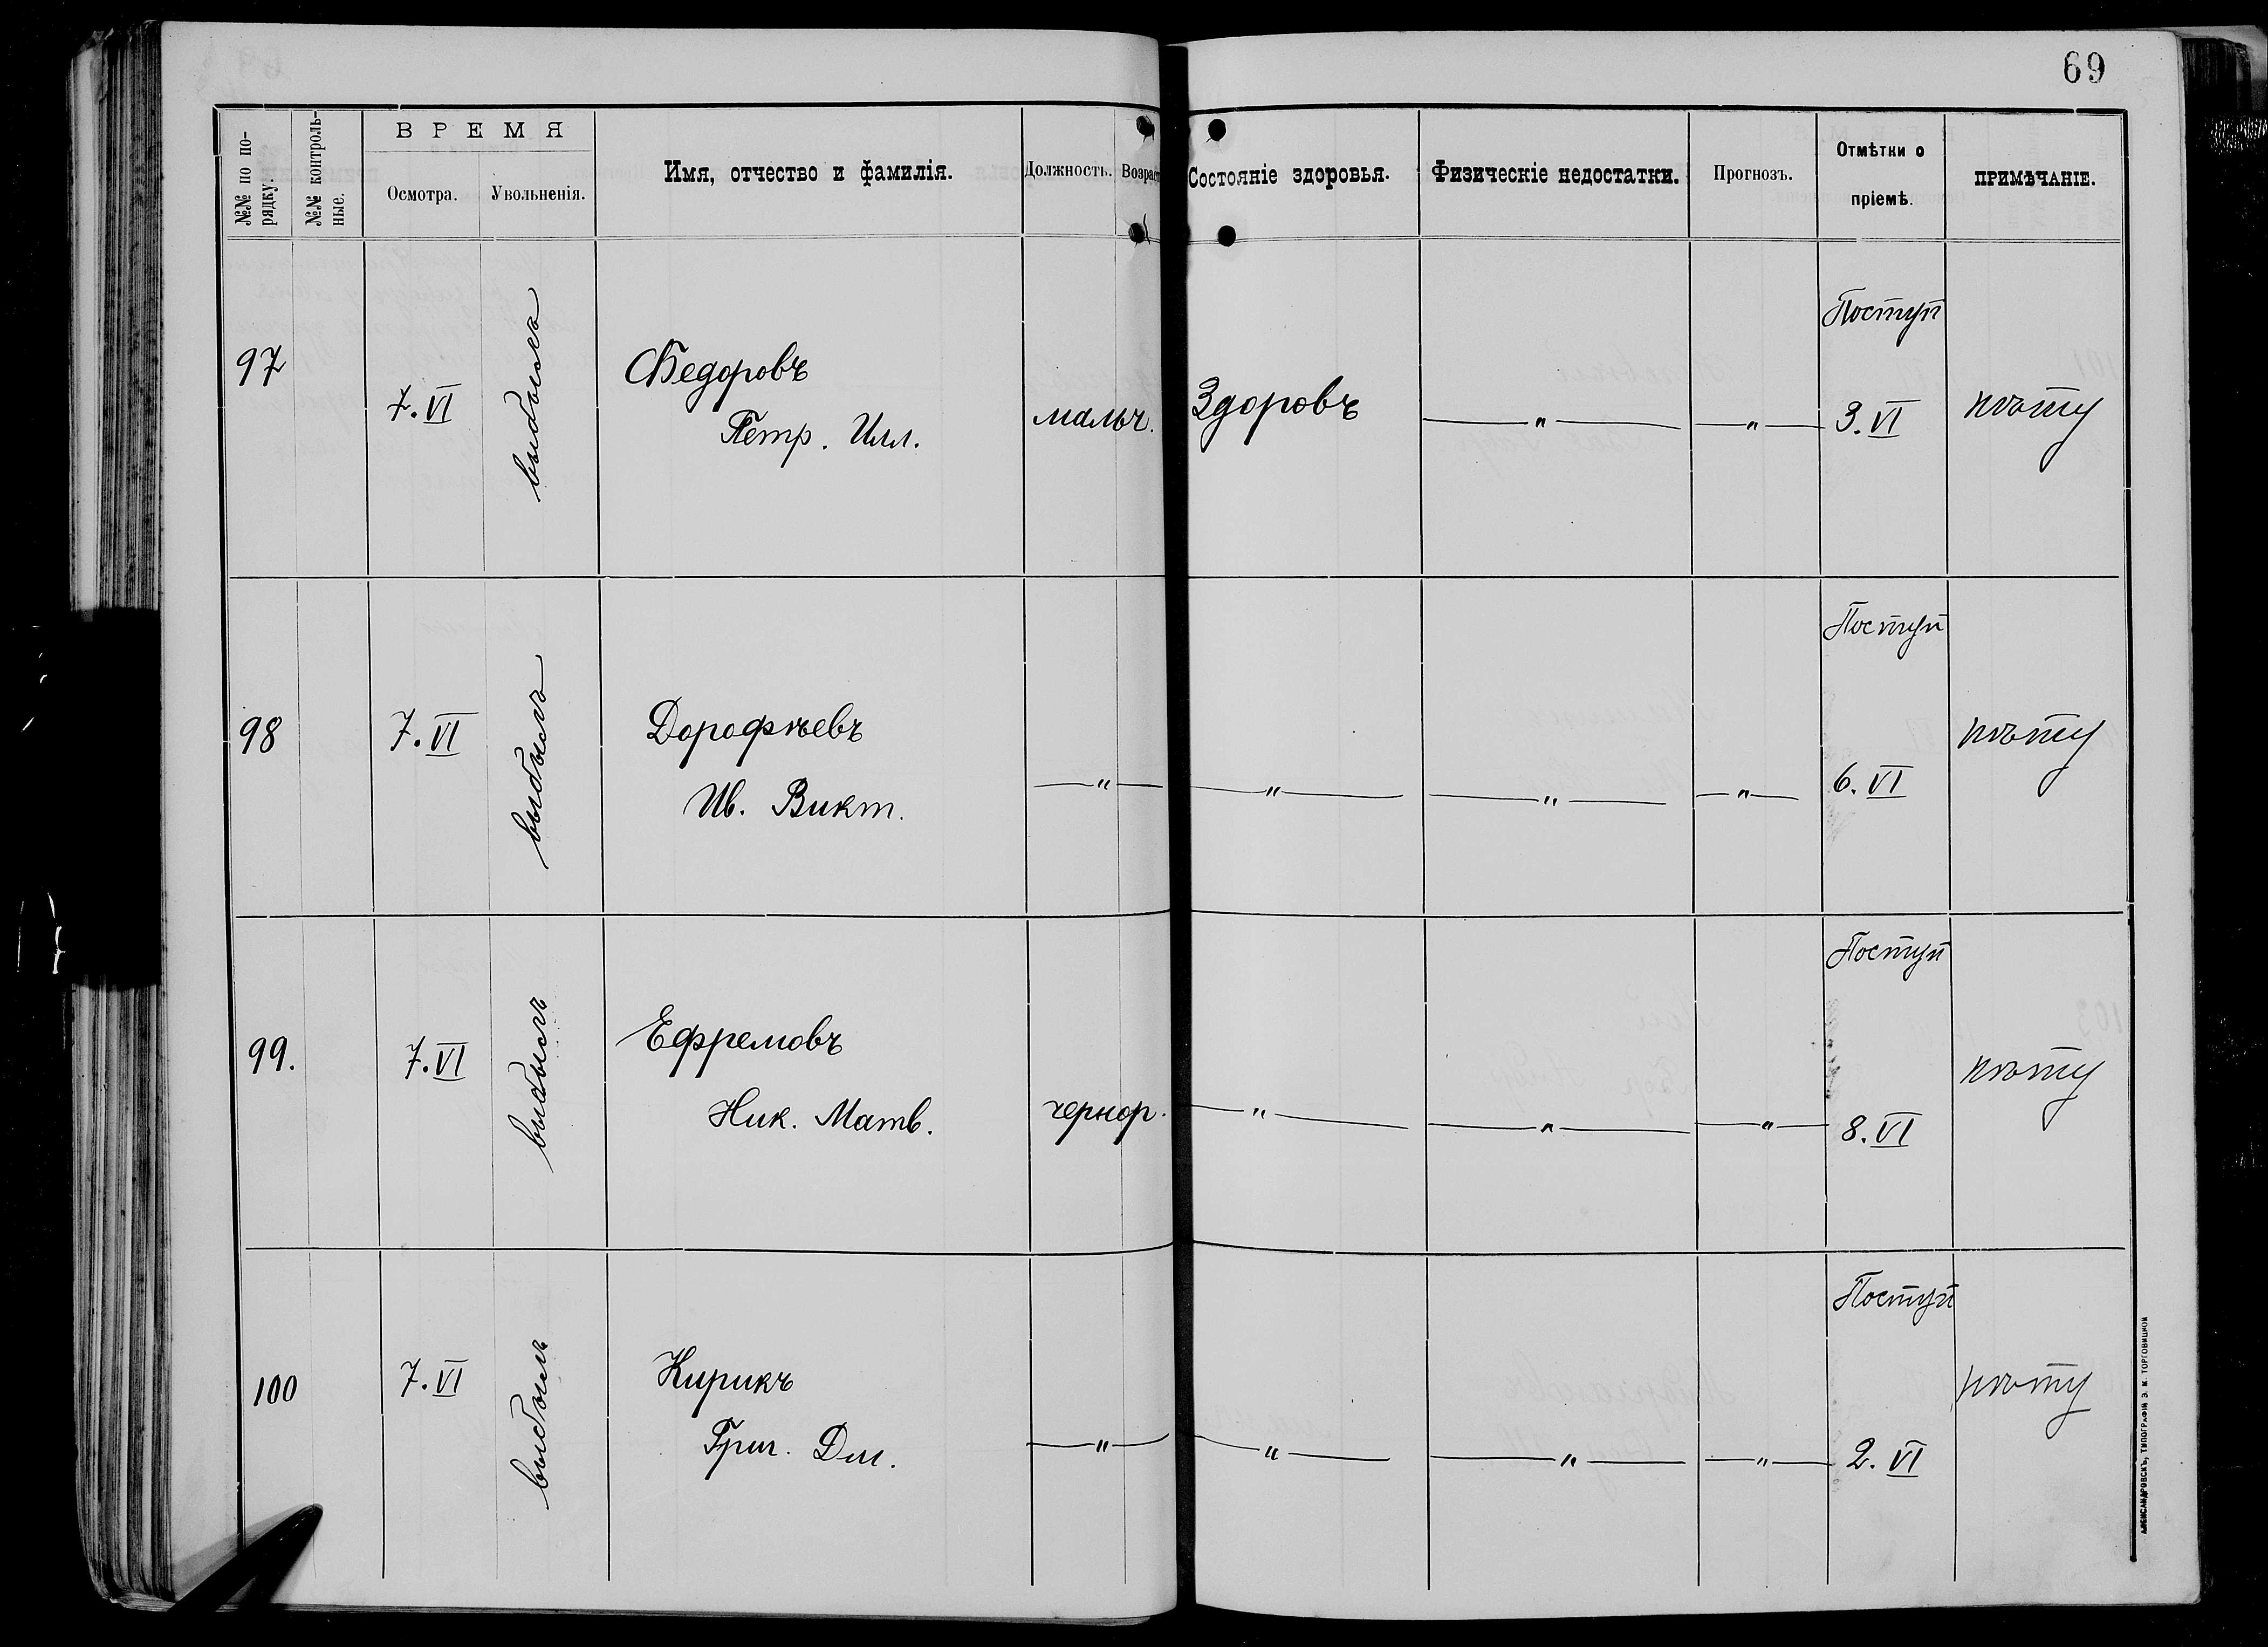 69
№№ по по-
рядку.
№№ контроль-
ные.
ВРЕМЯ
Осмотра.
Увольненія.
Имя, отчество и фамилія.
Должность.
Возраст
Состояніе здоровья.
Физическіе недостатки.
Прогнозъ.
Отмѣтки о
пріемѣ.
ПРИМѢЧАНІЕ.
97
7. VI
выбылъ
Федоровъ
Петр. Илл.
мальч.
Здоровъ
— " —
— " —
Поступ
3. VI
нѣту
98
7. VI
выбылъ
Дорофѣевъ
Ив. Викт.
— " —
— " —
— " —
— " —
Поступ
6. VI
нѣту
99.
7. VI
выбылъ
Ефремовъ
Ник. Матв.
чернор.
— " —
— " —
— " —
Поступ
8. VI
нѣту
100
7. VI
выбылъ
Кирикъ
Григ. Дм.
— " —
— " —
— " —
— " —
Поступ
2. VI
нѣту
АЛЕКСАНДРОВСКЪ, ТИПОГРАФІЯ Э. М. ТОРГОВИЦКОЙ